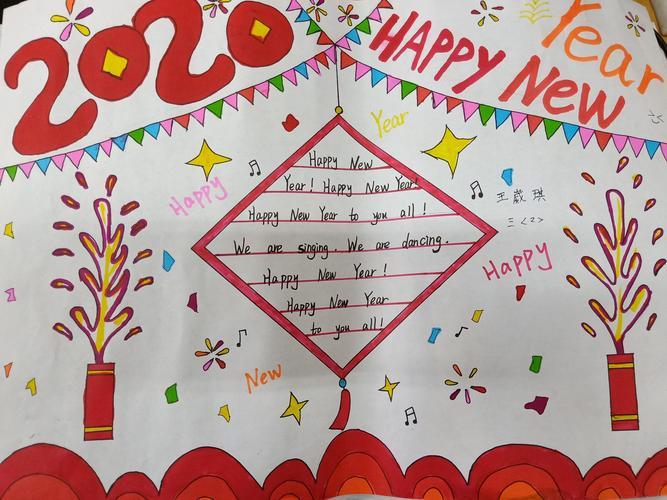 2020
HAPPY New
Year
Year
Happy New
Year! Happy New Year!
Happy New Year to you all!
We are singing. We are dancing.
Happy New Year!
Happy New Year
to you all!
Happy
王葳琪
三<2>
Happy
New